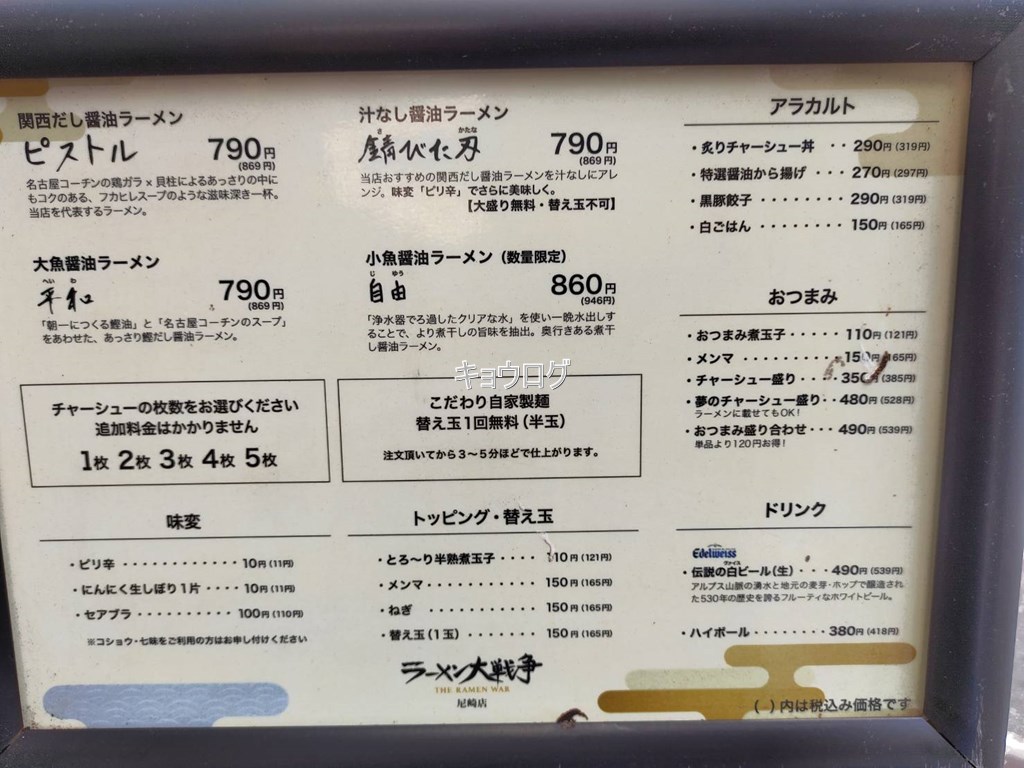 関西だし醤油ラーメン
ピストル 790円
(869円)
名古屋コーチンの鶏ガラ×貝柱によるあっさりの中に
もコクのある、フカヒレスープのような滋味深き一杯。
当店を代表するラーメン。
汁なし醤油ラーメン
さ かたな
錆びた刃 790円
(869円)
当店おすすめの関西だし醤油ラーメンを汁なしにアレ
ンジ。味変「ピリ辛」でさらに美味しく。
【大盛り無料・替え玉不可】
大魚醤油ラーメン
へい わ
平和 790円
(869円)
「朝一につくる鰹油」と「名古屋コーチンのスープ」
をあわせた、あっさり鰹だし醤油ラーメン。
小魚醤油ラーメン(数量限定)
じ ゆう
自由 860円
(946円)
「浄水器でろ過したクリアな水」を使い一晩水出しす
ることで、より煮干しの旨味を抽出。奥行きある煮干
し醤油ラーメン。
キョウログ
チャーシューの枚数をお選びください
追加料金はかかりません
1枚 2枚 3枚 4枚 5枚
こだわり自家製麺
替え玉1回無料(半玉)
注文頂いてから3〜5分ほどで仕上がります。
味変
・ピリ辛 ・・・・・・・・・・・・ 10円(11円)
・にんにく生しぼり1片 ・・・・ 10円(11円)
・セアブラ ・・・・・・・・・・ 100円(110円)
※コショウ・七味をご利用の方はお申し付けください
トッピング・替え玉
・とろ〜り半熟煮玉子 ・・・・ 110円(121円)
・メンマ ・・・・・・・・・・・ 150円(165円)
・ねぎ ・・・・・・・・・・・・ 150円(165円)
・替え玉(1玉) ・・・・・・・ 150円(165円)
ラーメン大戦争
THE RAMEN WAR
尼崎店
アラカルト
・炙りチャーシュー丼 ・・ 290円(319円)
・特選醤油から揚げ ・・・・ 270円(297円)
・黒豚餃子 ・・・・・・・・ 290円(319円)
・白ごはん ・・・・・・・・ 150円(165円)
おつまみ
・おつまみ煮玉子 ・・・・・ 110円(121円)
・メンマ ・・・・・・・・・・ 150円(165円)
・チャーシュー盛り ・・・・ 350円(385円)
・夢のチャーシュー盛り ・・ 480円(528円)
ラーメンに載せてもOK!
・おつまみ盛り合わせ ・・・ 490円(539円)
単品より120円お得!
ドリンク
Edelweiss
ヴァイス
・伝説の白ビール(生) ・・・ 490円(539円)
アルプス山脈の湧水と地元の麦芽・ホップで醸造され
た530年の歴史を誇るフルーティなホワイトビール。
・ハイボール ・・・・・・・・ 380円(418円)
( )内は税込み価格です